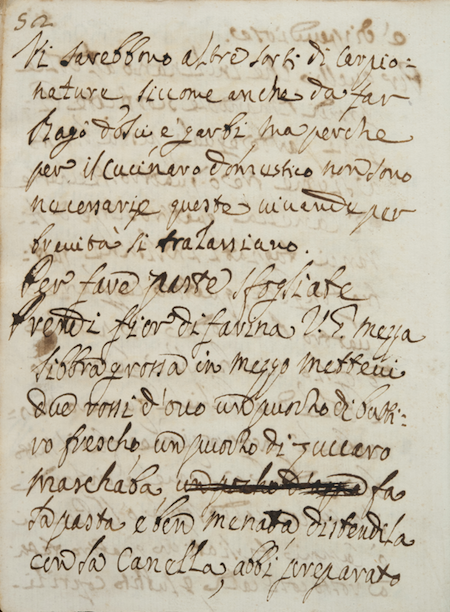 52
Vi sarebbono altre sorti di Carpio-
nature, siccome anche da far
Ragò dolci e garbi ma perche
per il Cucinaro domestico non sono
necessarie queste vivande per
brevità si tralassiano.
Per fare paste sfogliate
Prendi fior di farina mezza
libbra grossa in mezzo mettevi
due rossi d'ovo un puocho di butti-
ro frescho, un puocho di zuccaro
marchaba fa
la pasta e ben menata distendila
con la Canella, abbi preparato